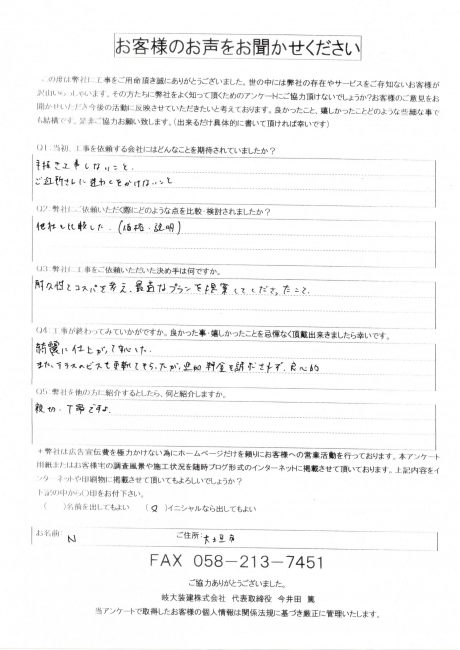 お客様のお声をお聞かせください
この度は弊社に工事をご用命頂き誠にありがとうございました。世の中には弊社の存在やサービスをご存知ないお客様が
沢山いらっしゃいます。その方たちに弊社をよく知って頂くためのアンケートにご協力頂けないでしょうか?お客様のご意見をお
聞かせいただき今後の活動に反映させていただきたいと考えております。良かったこと、嬉しかったことどのような些細な事で
も結構です。是非ご協力お願い致します。(出来るだけ具体的に書いて頂ければ幸いです)
Q1.当初、工事を依頼する会社にはどんなことを期待されていましたか?
手抜き工事しないこと。
ご近所さんに迷わくをかけないこと
Q2.弊社にご依頼いただく際にどのような点を比較・検討されましたか?
他社と比較した。(価格・説明)
Q3.弊社に工事をご依頼いただいた決め手は何ですか。
耐久性とコスパを考え、最適なプランを提案してくださったこと。
Q4.工事が終わってみていかがですか。良かった事・嬉しかったことを忌憚なく頂戴出来きましたら幸いです。
綺麗に仕上がって安心した。
また、テラスのビスも更新してもらったが、追加料金を請求されず、良心的
Q5.弊社を他の方に紹介するとしたら、何と紹介しますか。
親切・丁寧ですよ。
*弊社は広告宣伝費を極力かけない為にホームページだけを頼りにお客様への営業活動を行っております。本アンケート
用紙またはお客様宅の調査風景や施工状況を随時ブログ形式のインターネットに掲載させて頂いております。上記内容をイ
ンターネットや印刷物に掲載させて頂いてもよろしいでしょうか?
上記の中から○印をお付下さい。
( )名前を出してもよい (○)イニシャルなら出してもよい
お名前: N ご住所:大垣市
FAX 058-213-7451
ご協力ありがとうございました。
岐大装建株式会社 代表取締役 今井田 篤
当アンケートで取得したお客様の個人情報は関係法規に基づき厳正に管理いたします。